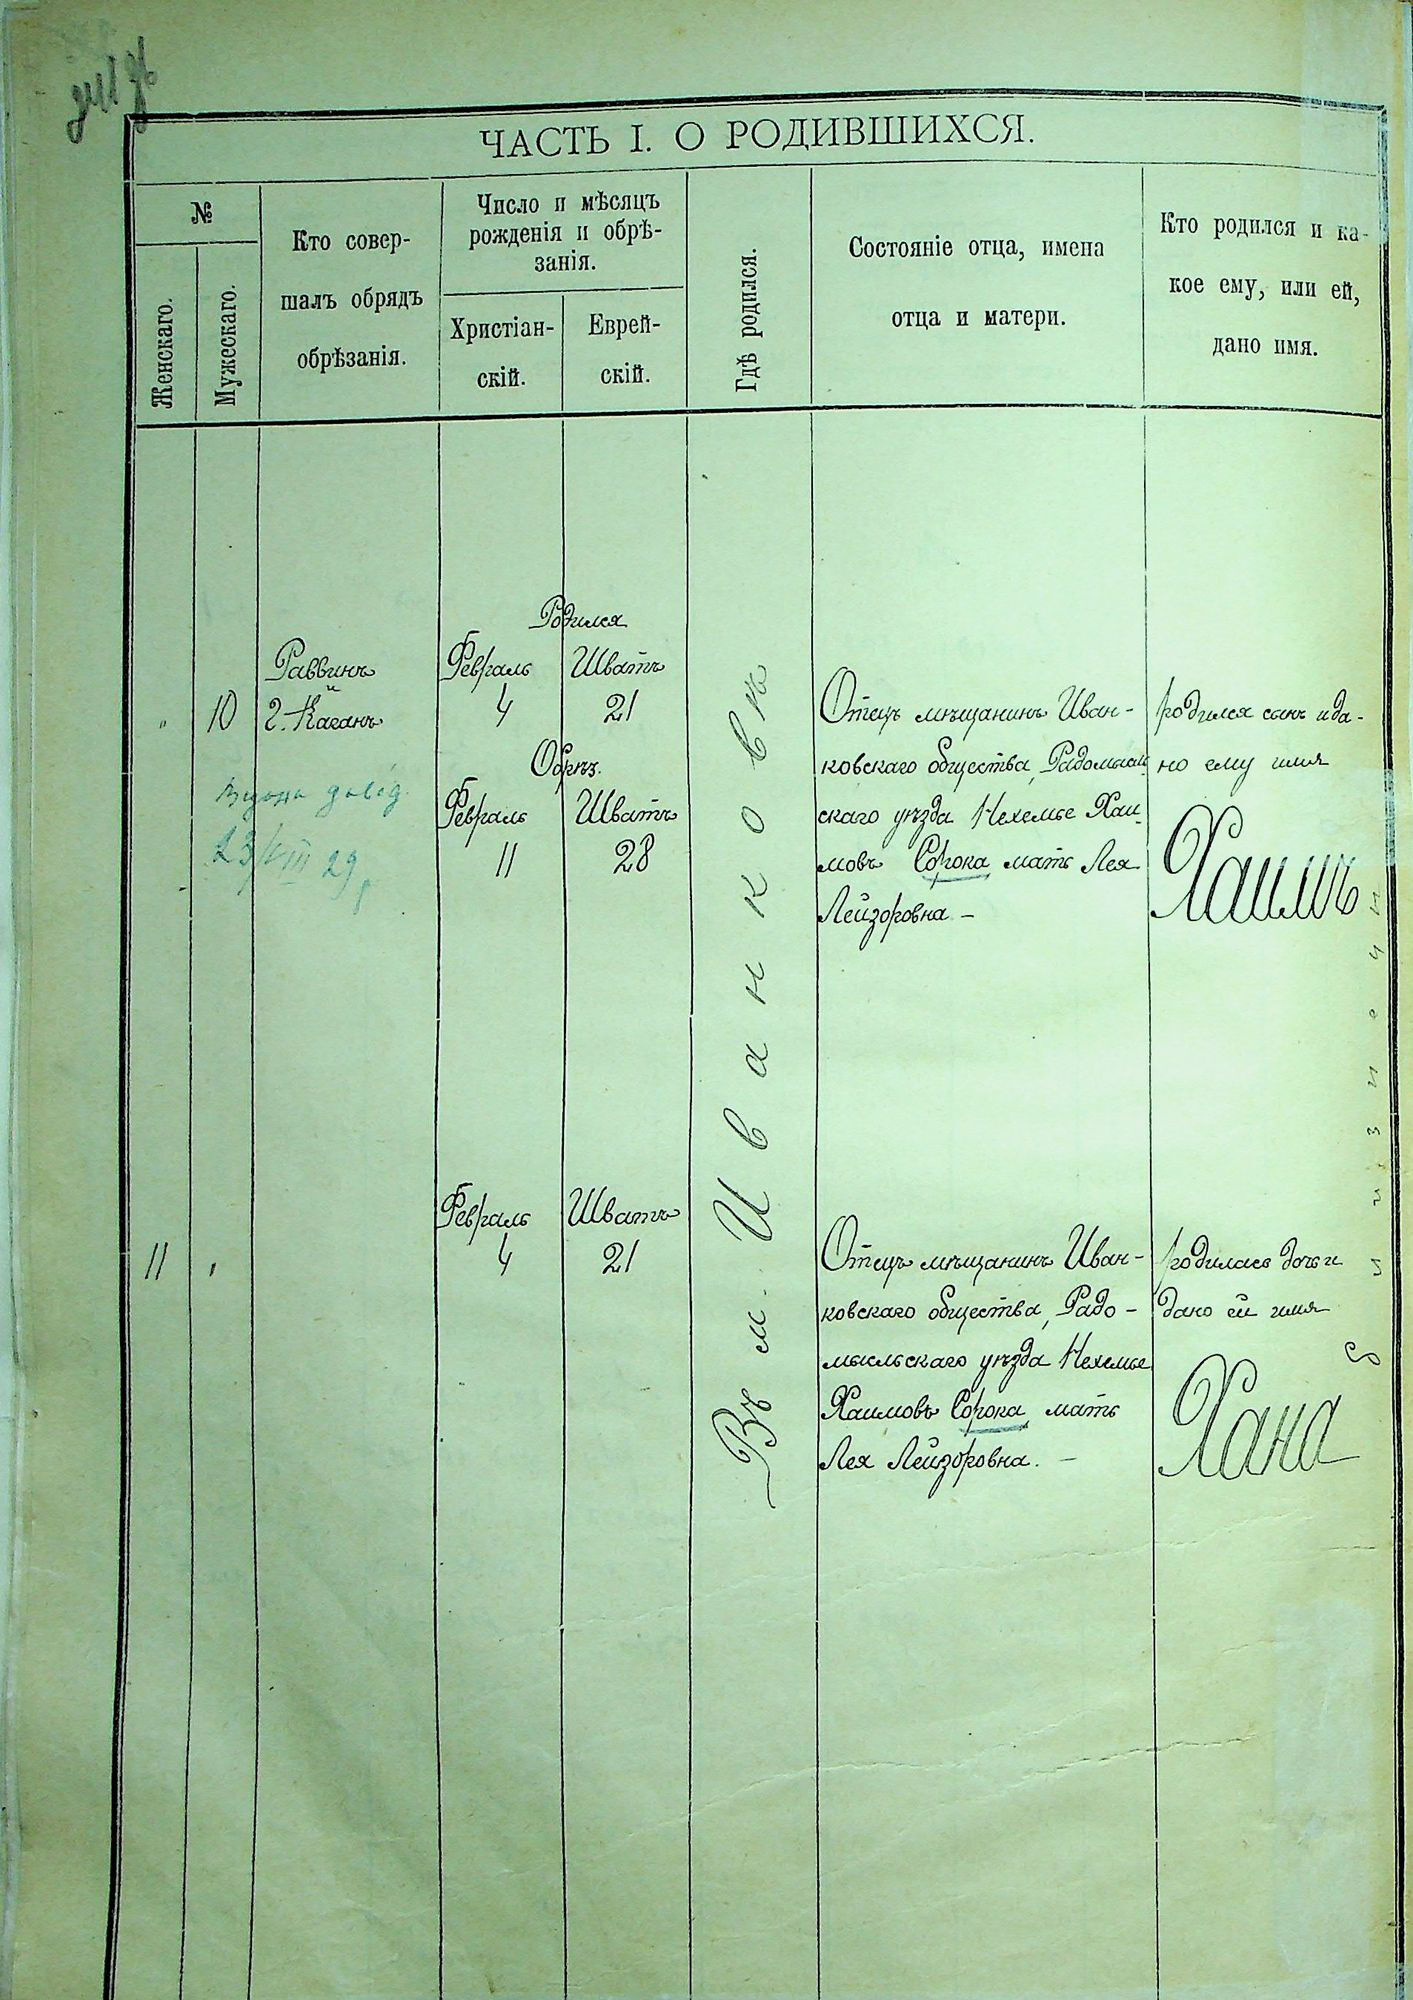 ЧАСТЬ I. О РОДИВШИХСЯ.
№
Женскаго.
Мужескаго.
Кто совер-
шалъ обрядъ
обрѣзанія.
Число и мѣсяцъ
рожденія и обрѣ-
занія.
Христіан-
скій.
Еврей-
скій.
Гдѣ родился.
Состояніе отца, имена
отца и матери.
Кто родился и ка-
кое ему, или ей,
дано имя.
„ 10
Раввинъ
Г. Каганъ
Родился
Февраль Шватъ
4 21
Обрѣз.
Февраль Шватъ
11 28
23/VIII 29
Въ м. Иванковѣ
Отецъ мѣщанинъ Иван-
ковскаго общества, Радомысль
скаго уѣзда Нехемье Хаи-
мовъ Сорока мать Лея
Лейзоровна –
родился сынъ и да-
но ему имя
Хаимъ
11 „
Февраль Шватъ
4 21
Отецъ мѣщанинъ Иван-
ковскаго общества, Радо-
мысльскаго уѣзда Нехемье
Хаимовъ Сорока мать
Лея Лейзоровна. –
родилась дочь и
дано ей имя
Хана
близнецы